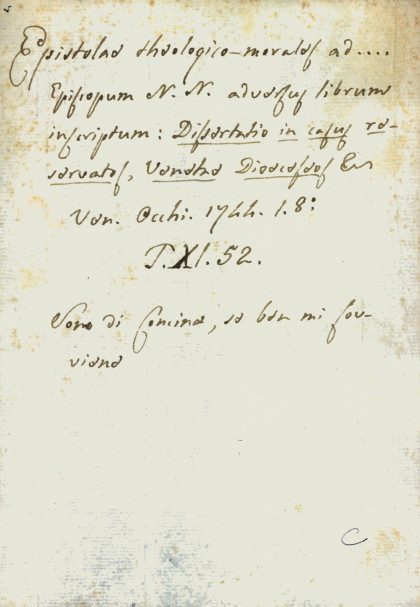 Epistolae theologico-morales ad....
Episcopum N. N. adversus librum
inscriptum: Dissertatio in casus re-
servatos, Venetae Dioeceseos &c
Ven. Occhi. 1744. 1. 8:
T. XI. 52.
Sono di Concina, se ben mi sov-
viene
C